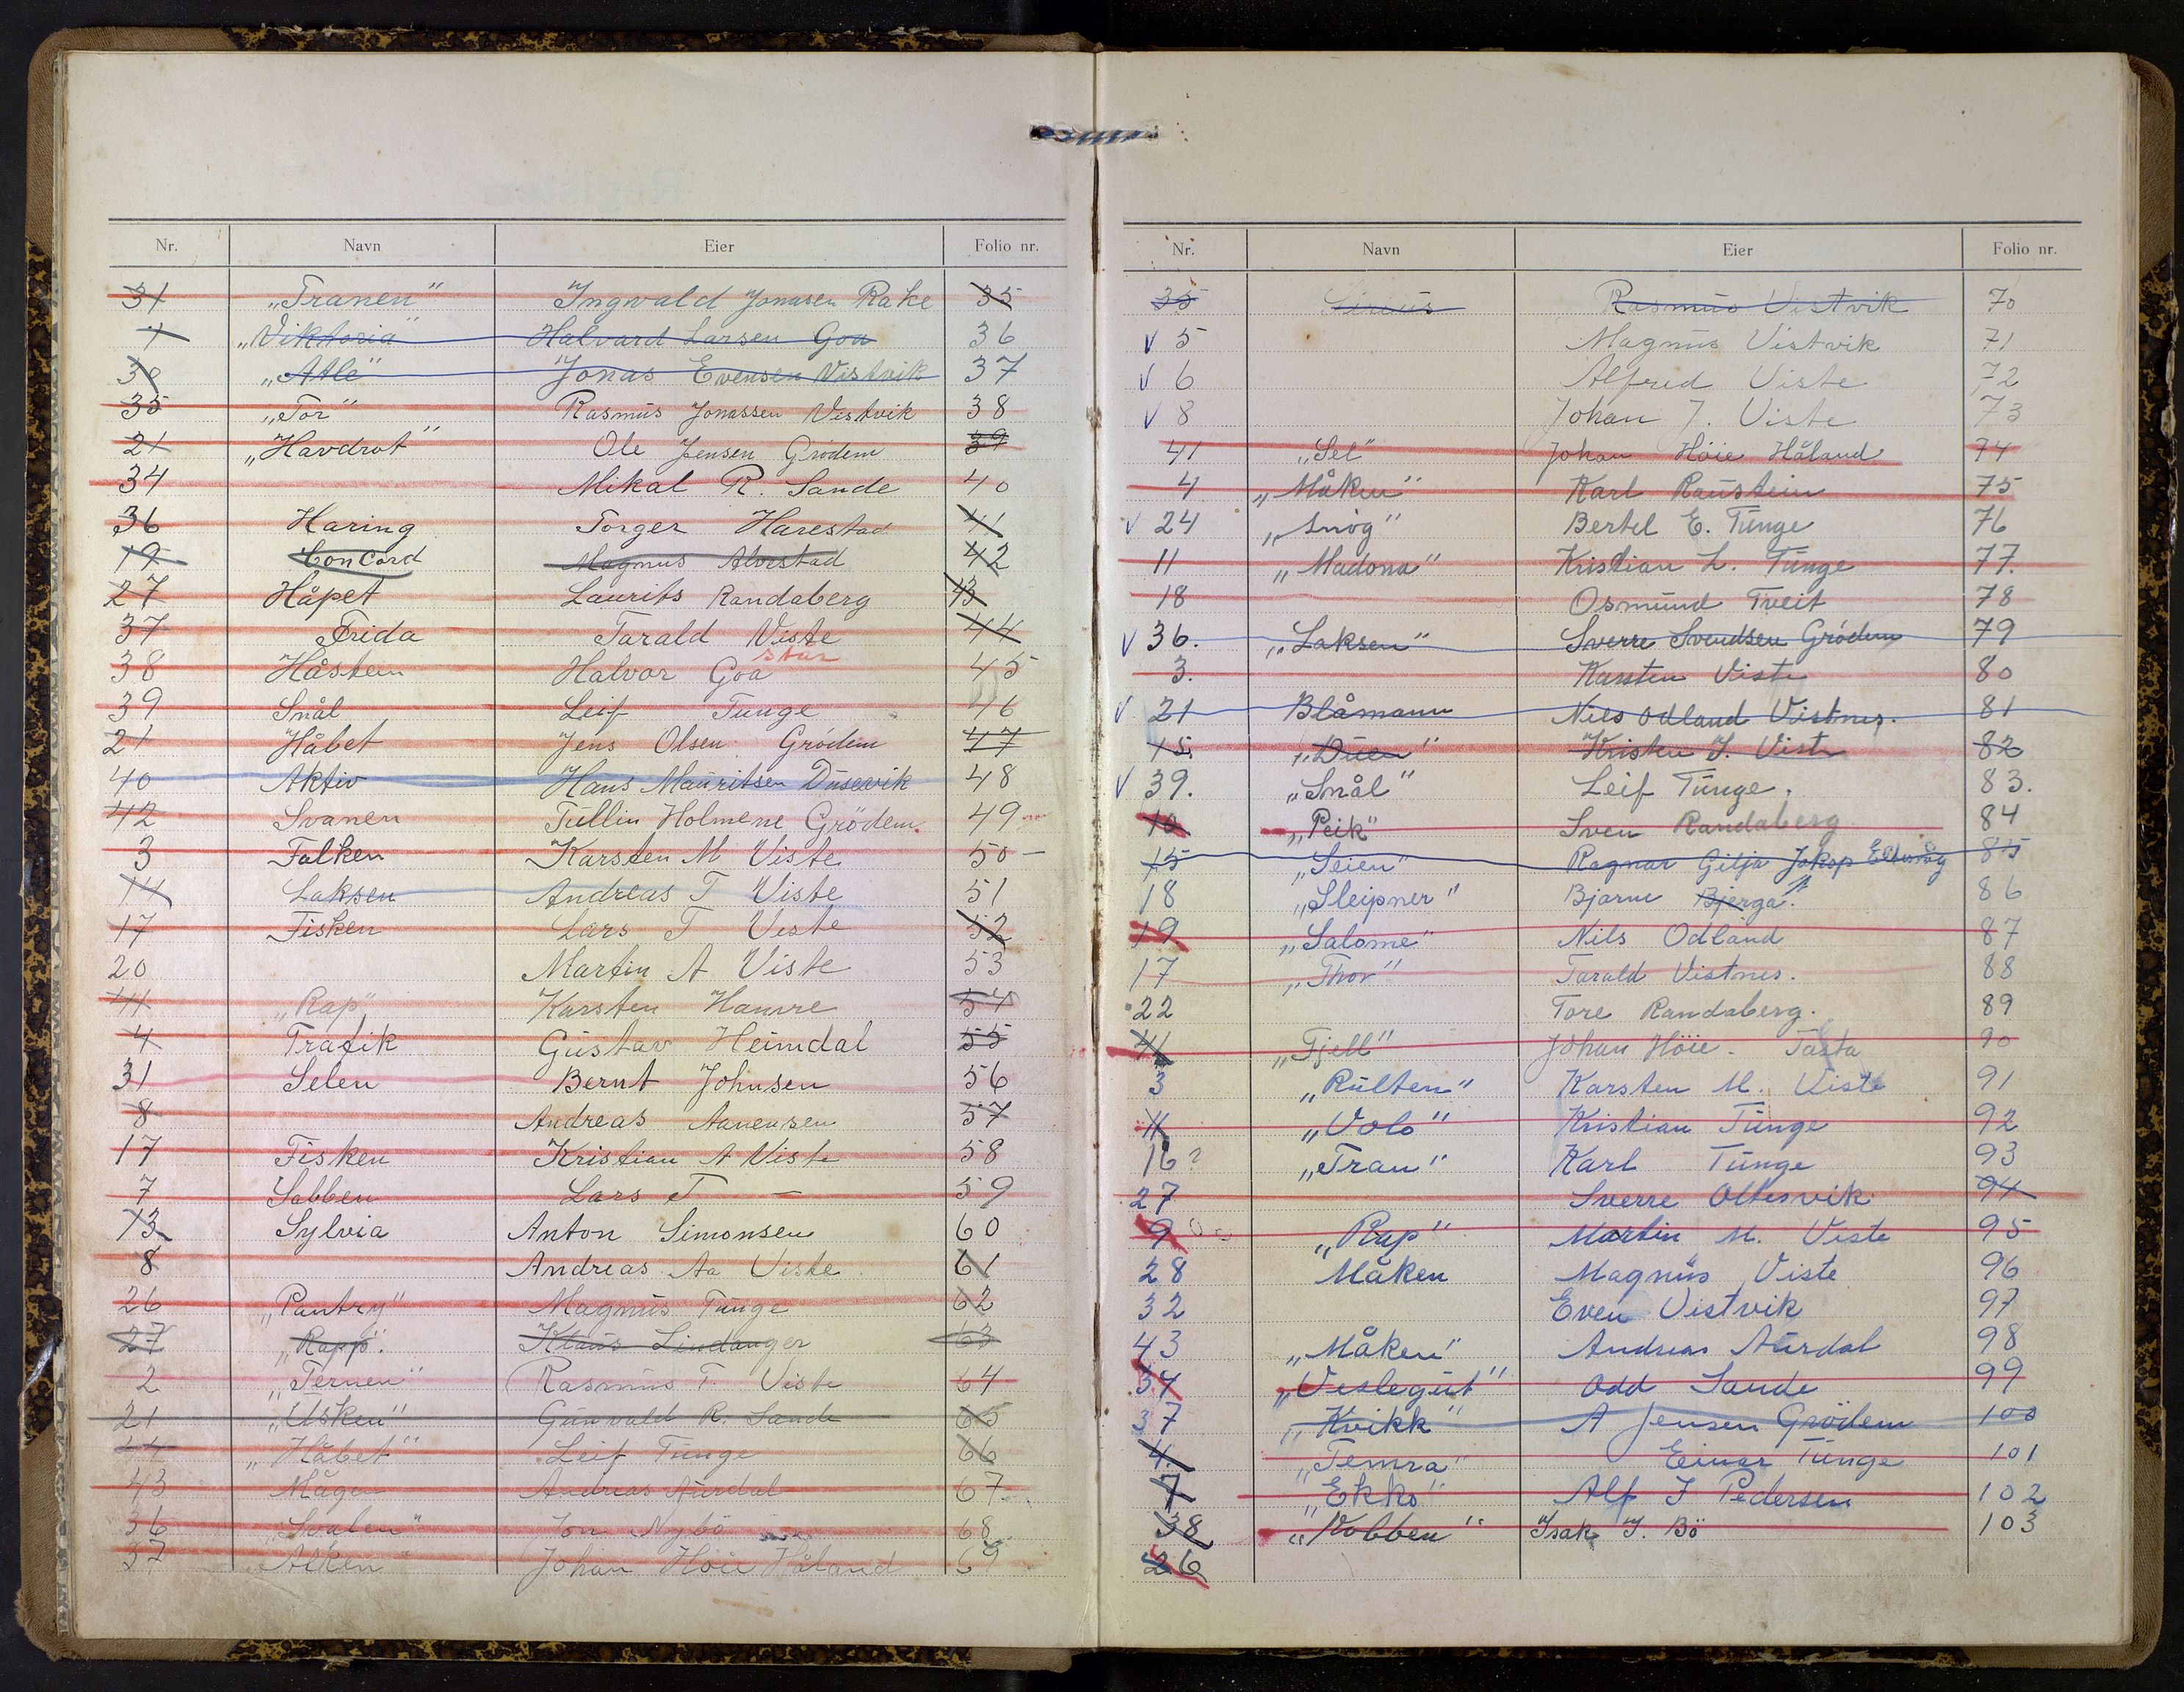 Nr. Navn Eier Folio nr.
31 „Tranen" Ingwald Jonasen Rake 35
1 „Viktoria" Halvard Larsen Goa 36
38 „Atle" Jonas Evensen Vistvik 37
35 „Tor" Rasmus Jonassen Vistvik 38
21 „Havdrot" Ole Jensen Grödem 39
34 Mikal R. Sande 40
36 Haring Torger Harestad 41
19 Concord Magnus Alvestad 42
27 Håpet Laurits Randaberg 43
37 Frida Tarald Viste 44
38 Håstein Halvor Goa star 45
39 Snål Leif Tunge 46
21 Håbet Jens Olsen Grödem 47
40 Aktiv Hans Mauritsen Dusevik 48
42 Svanen Tullin Holmene Grödem 49
3 Falken Karsten M Viste 50 –
14 Laksen Andreas T Viste 51
17 Fisken Lars T Viste 52
20 Martin A Viste 53
41 „Rap" Karsten Hamre 54
4 Trafik Gustav Heimdal 55
31 Selen Bernt Johnsen 56
8 Andreas Aanensen 57
17 Fisken Kristian A Viste 58
7 Sabben Lars T — 59
13 Sylvia Anton Simonsen 60
8 Andreas Aa Viste 61
26 „Pantry" Magnus Tunge 62
27 „Rapp". Klaus Lindanger 63
2 „Ternen" Rasmus T. Viste 64
21 „Usken" Gunvald R. Sande 65
44 „Håbet" Leif Tunge 66
43 Mågen Andreas Aurdal 67
36 „Svalen" Jon Nybö 68
37 „Alken" Johan Höie Håland 69
Nr. Navn Eier Folio nr.
35 Sirius Rasmus Vistvik 70
V 5 Magnus Vistvik 71
V 6 Alfred Viste 72
V 8 Johan J. Viste 73
41 „Sel" Johan Höie Håland 74
4 „Måken" Karl Raustein 75
V 24 „Snög" Bertel E. Tunge 76
11 „Madona" Kristian L. Tunge 77.
18 Osmund Tveit 78
V 36. „Laksen" Sverre Svendsen Grödem 79
3. Karsten Viste 80
V 21 Blåmann Nils Odland Vistnes. 81
15. „Duen" Kristen J. Viste 82
V 39. „Snål" Leif Tunge. 83.
10 „Peik" Sven Randaberg 84
15 „Seien" Ragnar Gilja Jakop 85
18 „Sleipner" Bjarne Bjerga. 86
19 „Salome" Nils Odland 87
17 „Thor" Tarald Vistnes. 88
22 Tore Randaberg. 89
41 „Fjell" Johan Höie. Tasta 90
3 „Rulten" Karsten M. Viste 91
11 „Volo" Kristian Tunge 92
16 ? „Tran" Karl Tunge 93
27 Sverre Oltesvik 94
9 „Rap" Martin M. Viste 95
28 Måken Magnus Viste 96
32 Even Vistvik 97
43 „Måken" Andreas Aurdal 98
34 „Veslegut" Odd Sande 99
37 „Kvikk" A Jensen Grödem 100
4. „Temra" Einar Tunge 101
7 „Ekko" Alf J Pedersen 102
38 „Kobben" Isak J. Bö 103
26